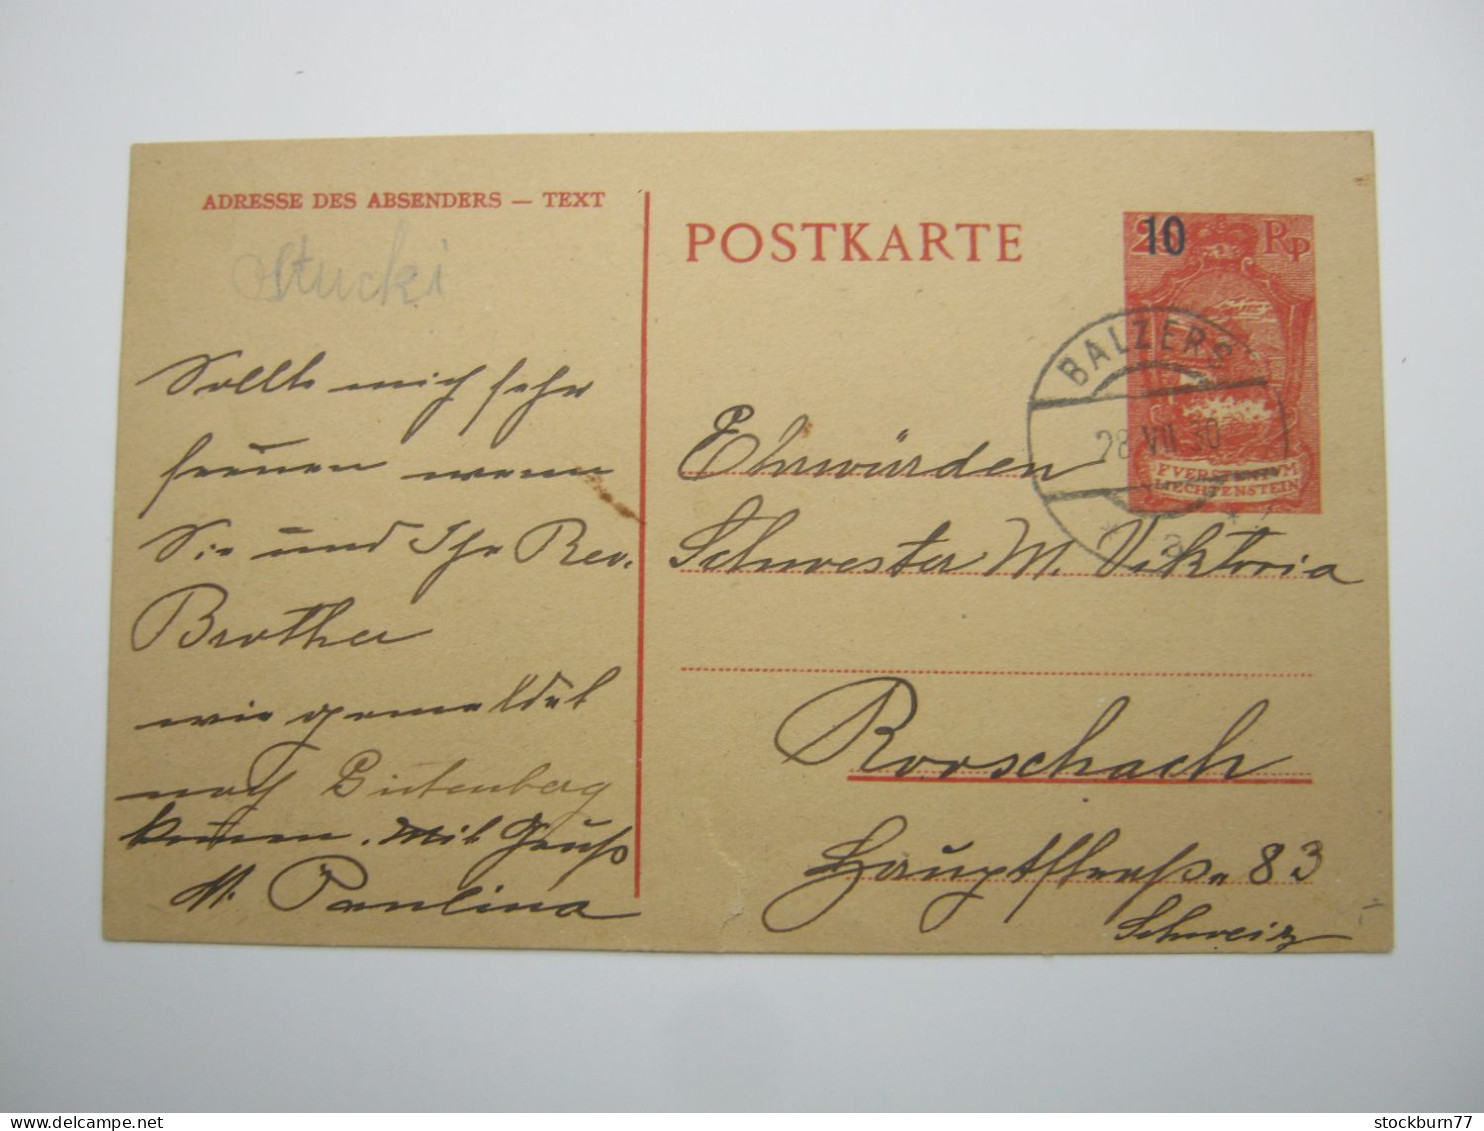 ADRESSE DES ABSENDERS — TEXT
Stucki
Sollte mich sehr
freuen wenn
Sie und Ihr Rev.
Brother
wie gemeldet
nach Gutenberg
kommen. Mit Gruß
M. Paulina
POSTKARTE
10
Rp
BALZERS
28.VII.30
a
FVERSTENTVM
LIECHTENSTEIN
Ehrwürden
Schwester M. Viktoria
Rorschach
Hauptstraße 83
Schweiz
stockburn77